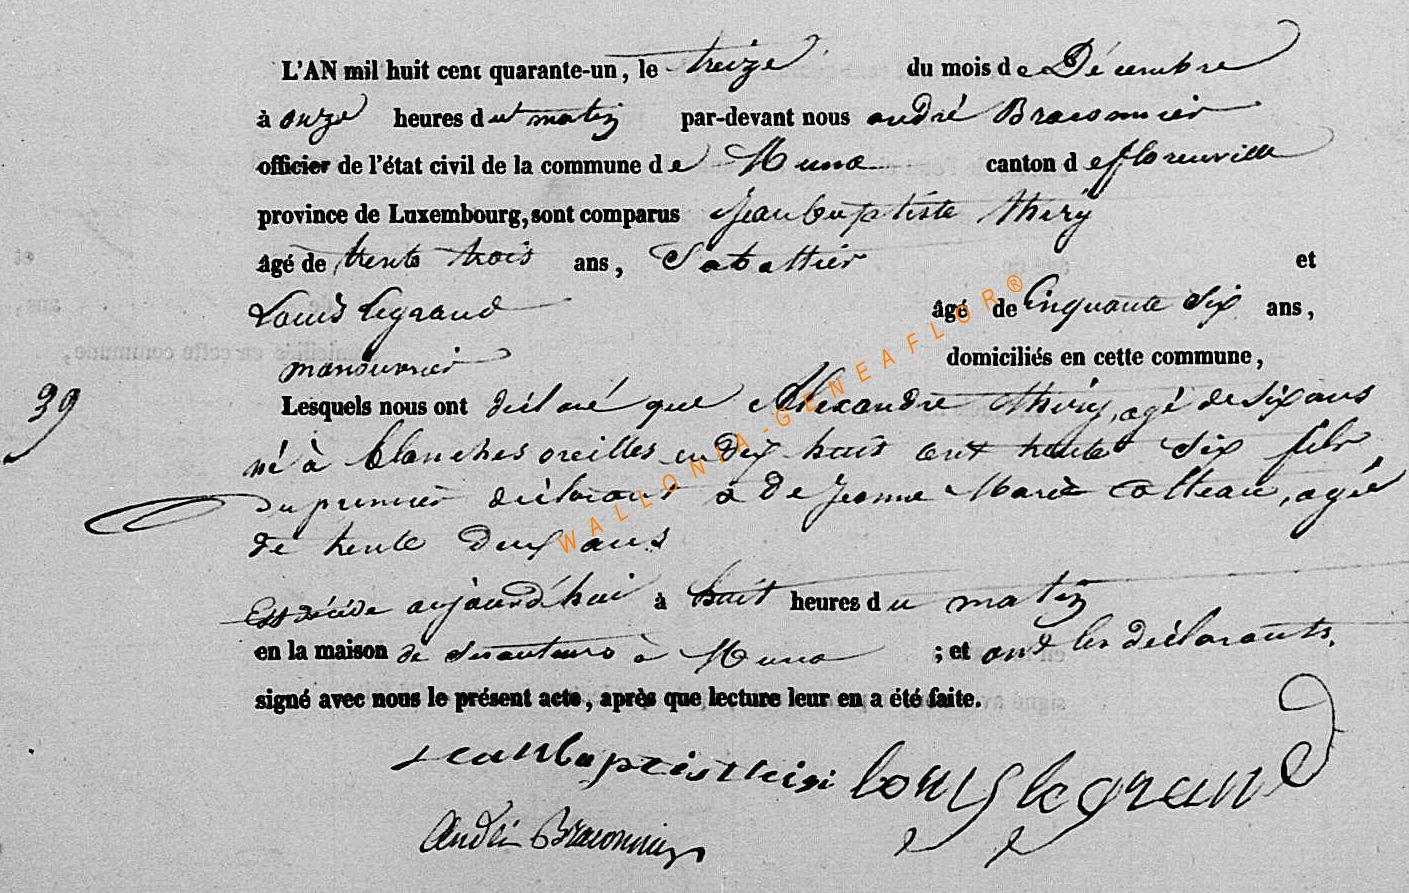 L'AN mil huit cent quarante-un, le treize du mois de Décembre
à onze heures du matin par-devant nous andré Braconnier
officier de l'état civil de la commune de Muno canton de florenville
province de Luxembourg, sont comparus jeanbaptiste thiry
âgé de trente trois ans, Sabattier et
Louis legrand âgé de Cinquante Six ans,
manouvrier domiciliés en cette commune,
39
Lesquels nous ont déclaré que Alexandre thiry, agé de Six ans
né à blanches oreilles en dix huit cent trente Six fils
du premier déclarant & de jeanne Marie Colleau, agée
de trente deux ans
Est décédé aujourd'hui à huit heures du matin
en la maison de à Muno ; et ont les déclarants
signé avec nous le présent acte, après que lecture leur en a été faite.
jeanbaptist thiri louis legrand
André Braconnier
WALLONIA-GENEAFLOR®